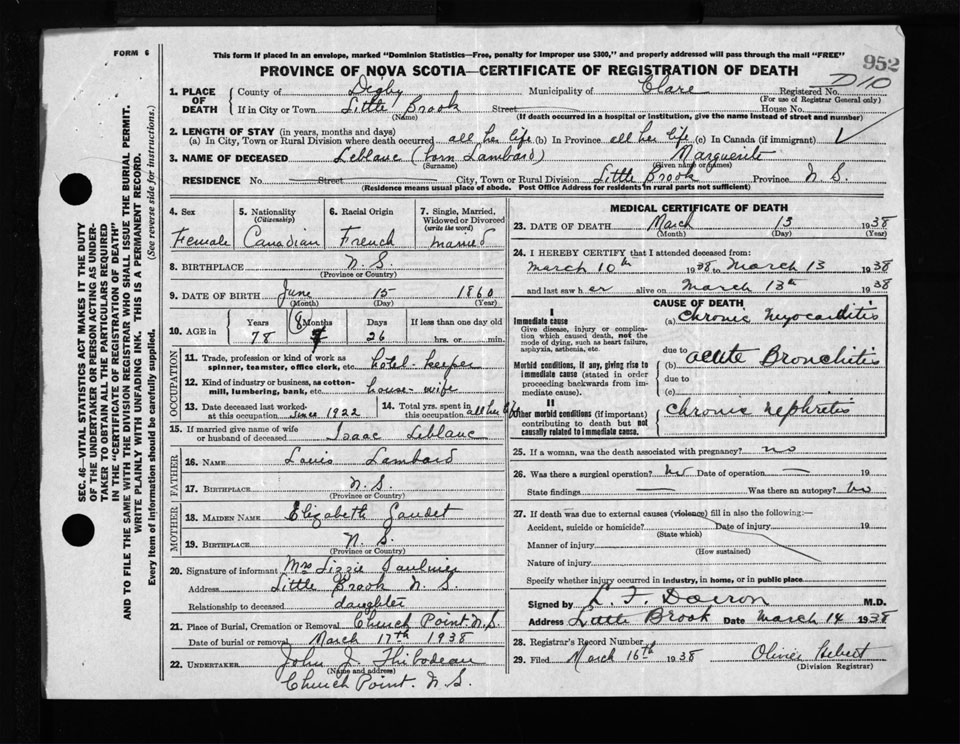 FORM 6
This form if placed in an envelope, marked "Dominion Statistics—Free, penalty for improper use $300," and properly addressed will pass through the mail "FREE"
952
PROVINCE OF NOVA SCOTIA—CERTIFICATE OF REGISTRATION OF DEATH
D10
1. PLACE OF DEATH
County of Digby Municipality of Clare Registered No.
(For use of Registrar General only)
If in City or Town Little Brook Street House No.
(Name) (If death occurred in a hospital or institution, give the name instead of street and number)
2. LENGTH OF STAY (in years, months and days)
(a) In City, Town or Rural Division where death occurred all her life (b) In Province all her life (c) In Canada (if immigrant)
3. NAME OF DECEASED Leblanc (born Lambard) Marguerite
(Surname) (Given name or names)
RESIDENCE No. Street City, Town or Rural Division Little Brook Province N. S.
(Residence means usual place of abode. Post Office Address for residents in rural parts not sufficient)
4. Sex Female
5. Nationality (Citizenship) Canadian
6. Racial Origin French
7. Single, Married, Widowed or Divorced (write the word) married
8. BIRTHPLACE N. S.
(Province or Country)
9. DATE OF BIRTH June 15 1860
(Month) (Day) (Year)
10. AGE in Years Months Days If less than one day old
78 8 26 hrs. or min.
OCCUPATION
11. Trade, profession or kind of work as spinner, teamster, office clerk, etc. hotel-keeper
12. Kind of industry or business, as cotton-mill, lumbering, bank, etc. house-wife
13. Date deceased last worked at this occupation since 1922
14. Total yrs. spent in this occupation all her life
15. If married give name of wife or husband of deceased Isaac Leblanc
FATHER
16. NAME Louis Lambard
17. BIRTHPLACE N. S.
(Province or Country)
MOTHER
18. MAIDEN NAME Elizabeth Gaudet
19. BIRTHPLACE N. S.
(Province or Country)
20. Signature of informant Mrs Lizzie Saulnier
Address Little Brook N. S.
Relationship to deceased daughter
21. Place of Burial, Cremation or Removal Church Point. N. S.
Date of burial or removal March 17th 1938
22. UNDERTAKER John J. Thibodeau
(Name and address)
Church Point. N. S.
MEDICAL CERTIFICATE OF DEATH
23. DATE OF DEATH March 13 1938
(Month) (Day) (Year)
24. I HEREBY CERTIFY that I attended deceased from:
March 10th 1938 to March 13 1938
and last saw her alive on March 13th 1938
CAUSE OF DEATH
I
Immediate cause
Give disease, injury or complication which caused death, not the mode of dying, such as heart failure, asphyxia, asthenia, etc.
(a) Chronic Myocarditis
due to
Morbid conditions, if any, giving rise to immediate cause (stated in order proceeding backwards from immediate cause)
(b) acute Bronchitis
due to
(c)
II
Other morbid conditions (if important) contributing to death but not causally related to immediate cause.
Chronic nephretis
25. If a woman, was the death associated with pregnancy? no
26. Was there a surgical operation? no Date of operation — 19
State findings — Was there an autopsy? no
27. If death was due to external causes (violence) fill in also the following:—
Accident, suicide or homicide? Date of injury 19
(State which)
Manner of injury
(How sustained)
Nature of injury
Specify whether injury occurred in industry, in home, or in public place
Signed by L. F. Doiron M.D.
Address Little Brook Date March 14 1938
28. Registrar's Record Number
29. Filed March 16th 1938 Olivier Hebert
(Division Registrar)
SEC. 46—VITAL STATISTICS ACT MAKES IT THE DUTY
OF THE UNDERTAKER OR PERSON ACTING AS UNDER-
TAKER TO OBTAIN ALL THE PARTICULARS REQUIRED
IN THE "CERTIFICATE OF REGISTRATION OF DEATH"
AND TO FILE THE SAME WITH THE DIVISION REGISTRAR WHO SHALL ISSUE THE BURIAL PERMIT.
WRITE PLAINLY WITH UNFADING INK. THIS IS A PERMANENT RECORD.
Every item of information should be carefully supplied. (See reverse side for instructions.)